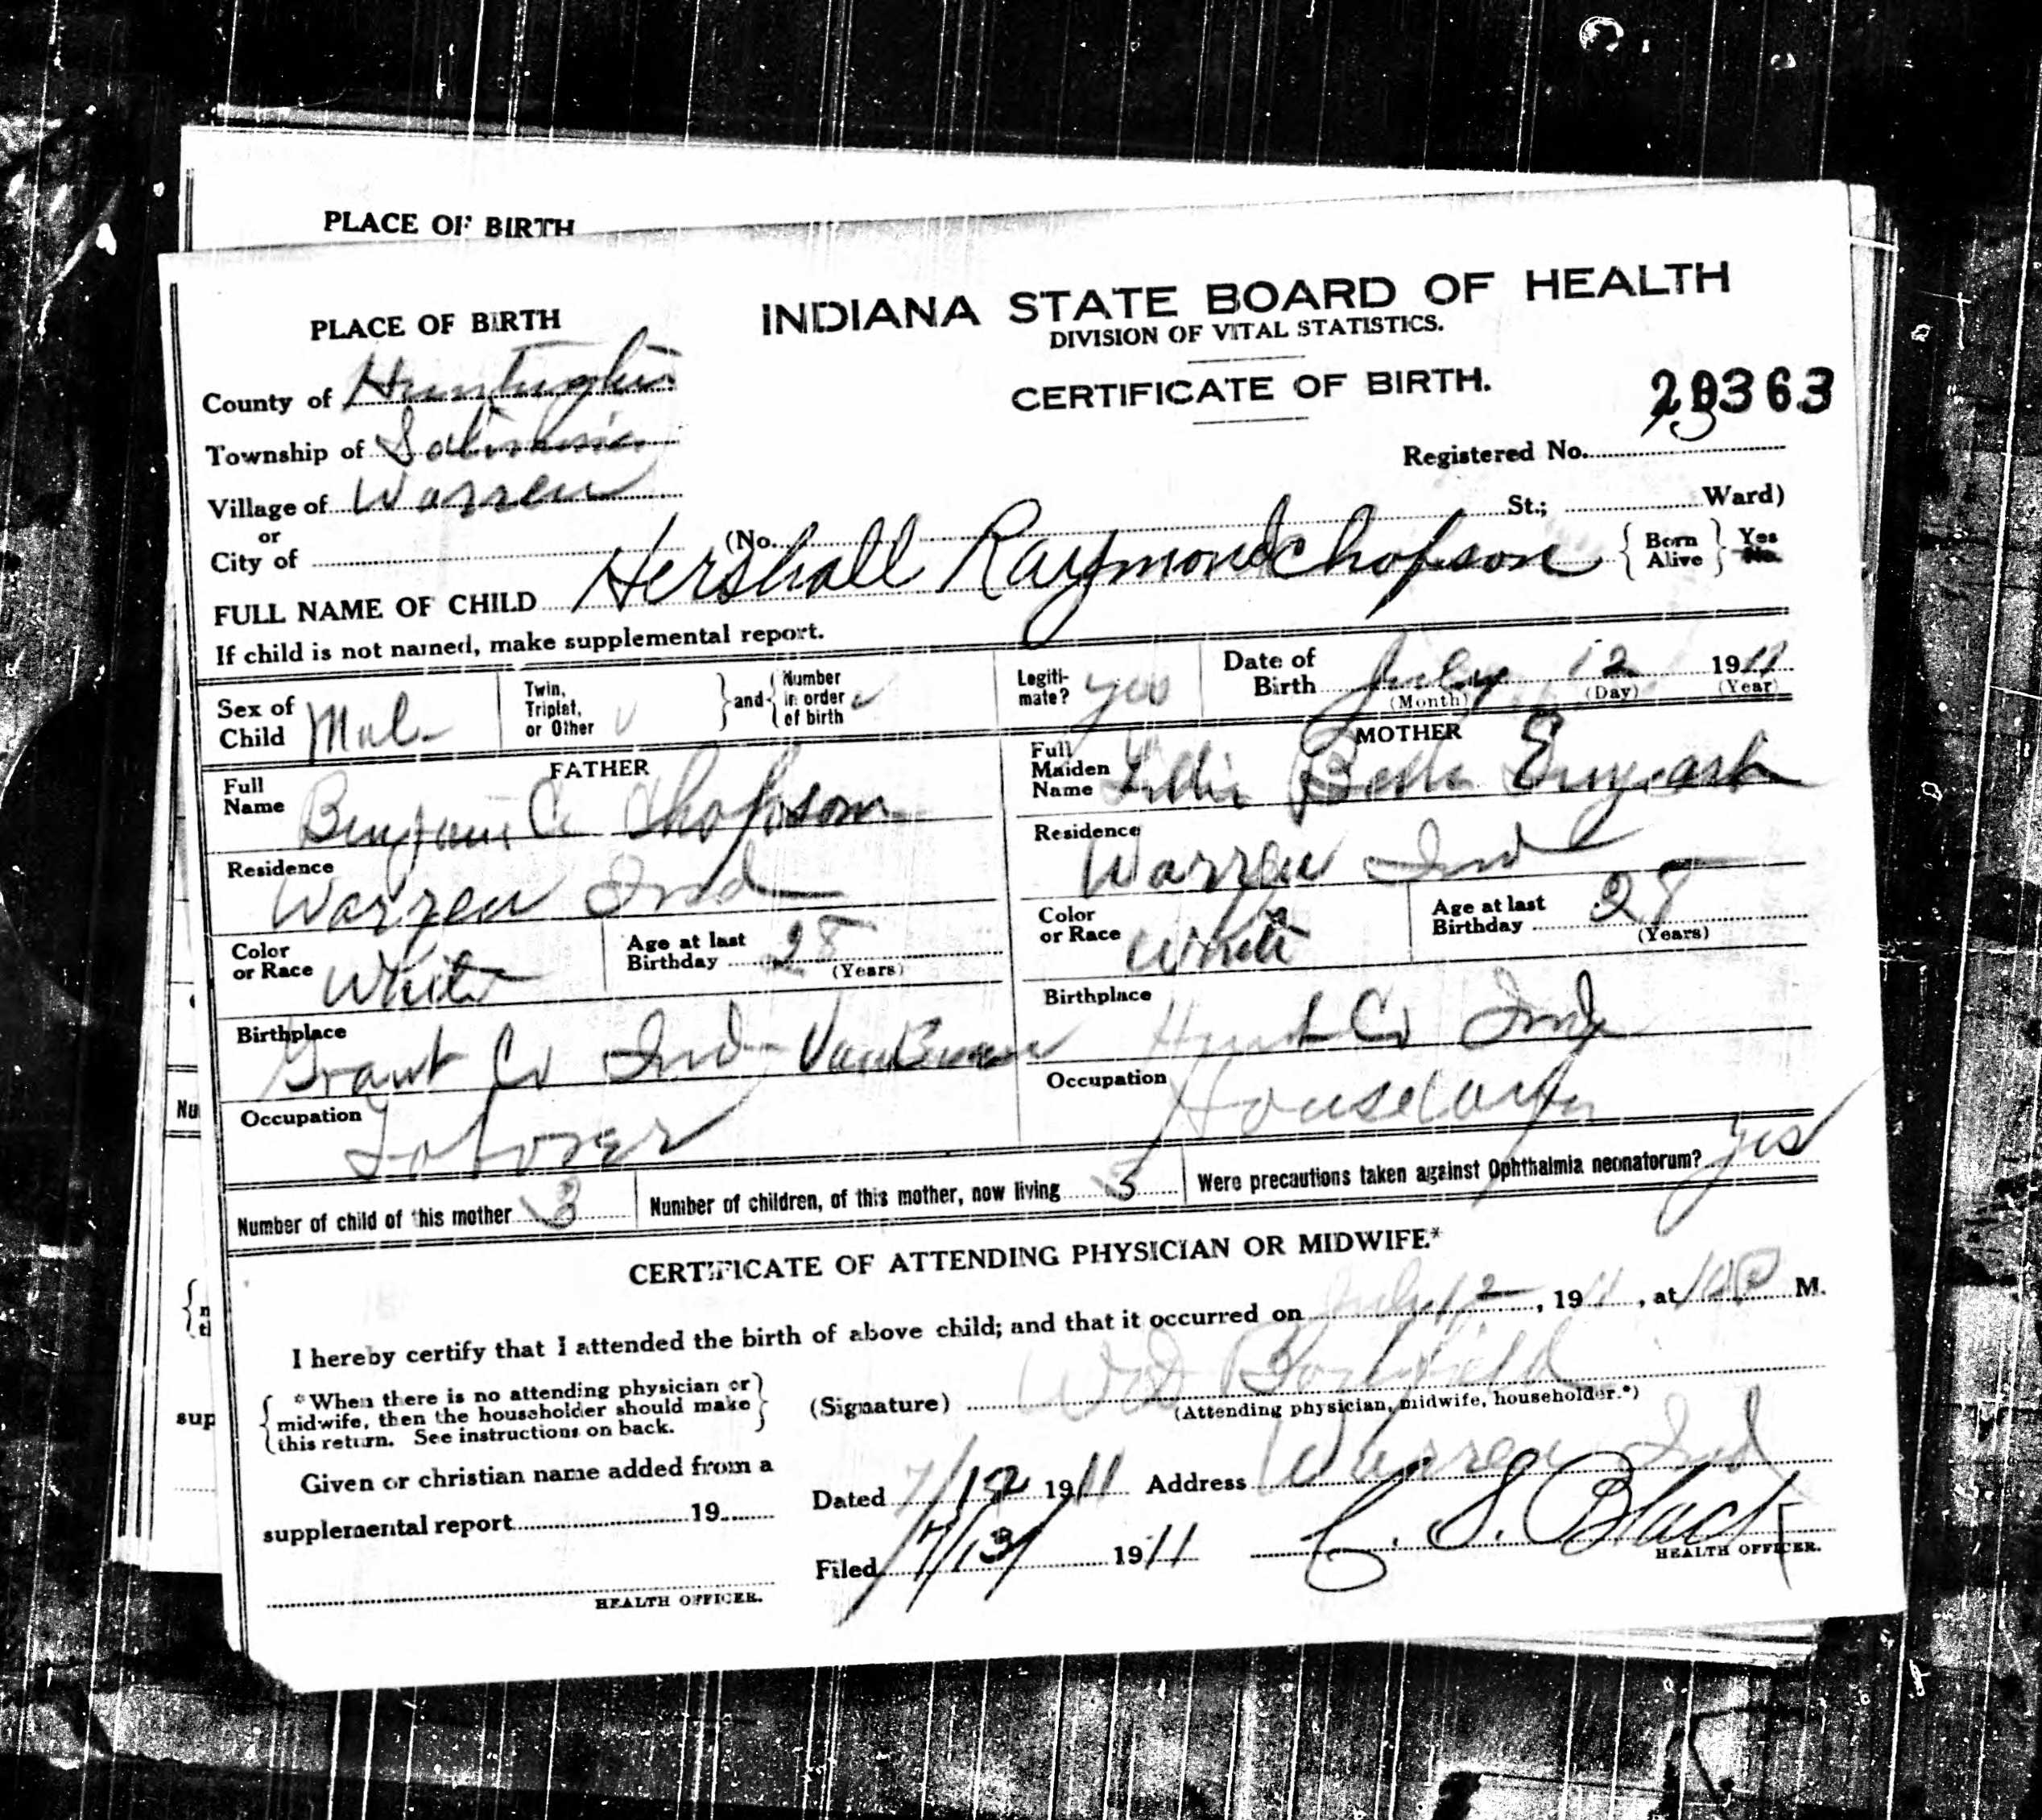 PLACE OF BIRTH
INDIANA STATE BOARD OF HEALTH
DIVISION OF VITAL STATISTICS.
CERTIFICATE OF BIRTH.
PLACE OF BIRTH
County of Huntington
Township of Salimonie
Village of Warren
or
City of
29363
Registered No.
(No. St.; Ward)
FULL NAME OF CHILD Hershall Raymond Chopson { Born Alive } Yes No.
If child is not named, make supplemental report.
Sex of Child Male
Twin, Triplet, or Other } and { Number in order of birth
Legiti- mate? yes
Date of Birth July 12 1911
(Month) (Day) (Year)
FATHER
Full Name Benjamin C Chopson
Residence
Warren Ind
Color or Race White
Age at last Birthday 28 (Years)
Birthplace
Grant Co Ind VanBuren
Occupation
Laborer
MOTHER
Full Maiden Name Lillie
Residence
Warren Ind
Color or Race White
Age at last Birthday 28 (Years)
Birthplace
Hunt Co Ind
Occupation
Number of child of this mother 3
Number of children, of this mother, now living 3
Were precautions taken against Ophthalmia neonatorum? yes
CERTIFICATE OF ATTENDING PHYSICIAN OR MIDWIFE*
I hereby certify that I attended the birth of above child; and that it occurred on July 12, 1911, at M.
{ *When there is no attending physician or midwife, then the householder should make this return. See instructions on back. }
(Signature)
(Attending physician, midwife, householder.*)
Given or christian name added from a
supplemental report 19
HEALTH OFFICER.
Dated 7/12 1911 Address Warren Ind
Filed 7/13/ 1911 C. S. Black
HEALTH OFFICER.
Nu
sup